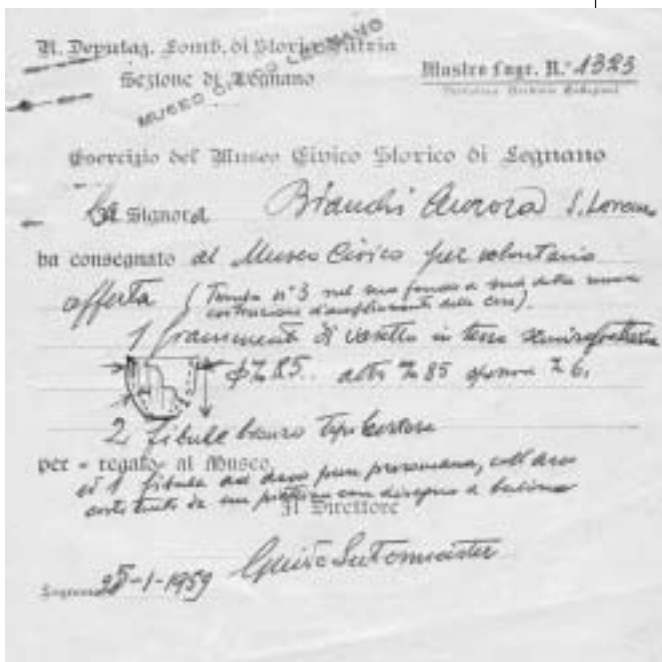 R. Deputaz. Lomb. di Storia Patria
Sezione di Legnano
MUSEO CIVICO LEGNANO
Mastro Ingr. N.° 1323
Esercizio del Museo Civico Storico di Legnano
La Signora Bianchi Aurora S. Lorenzo
ha consegnato al Museo Civico per volontaria
offerta (Tomba n° 3 nel suo fondo a sud della nuova
costruzione d'ampliamento della casa).
1 frammento di vasetto in terra
85 alto 85 6.
2 fibule bronzo tipo Certosa
per = regalo = al Museo,
ed 1 fibula ad arco pure preromana, coll'arco
costituito da un piattino con disegno a bulino
Il Direttore
Guido Sutermeister
Legnano 25-1-1959